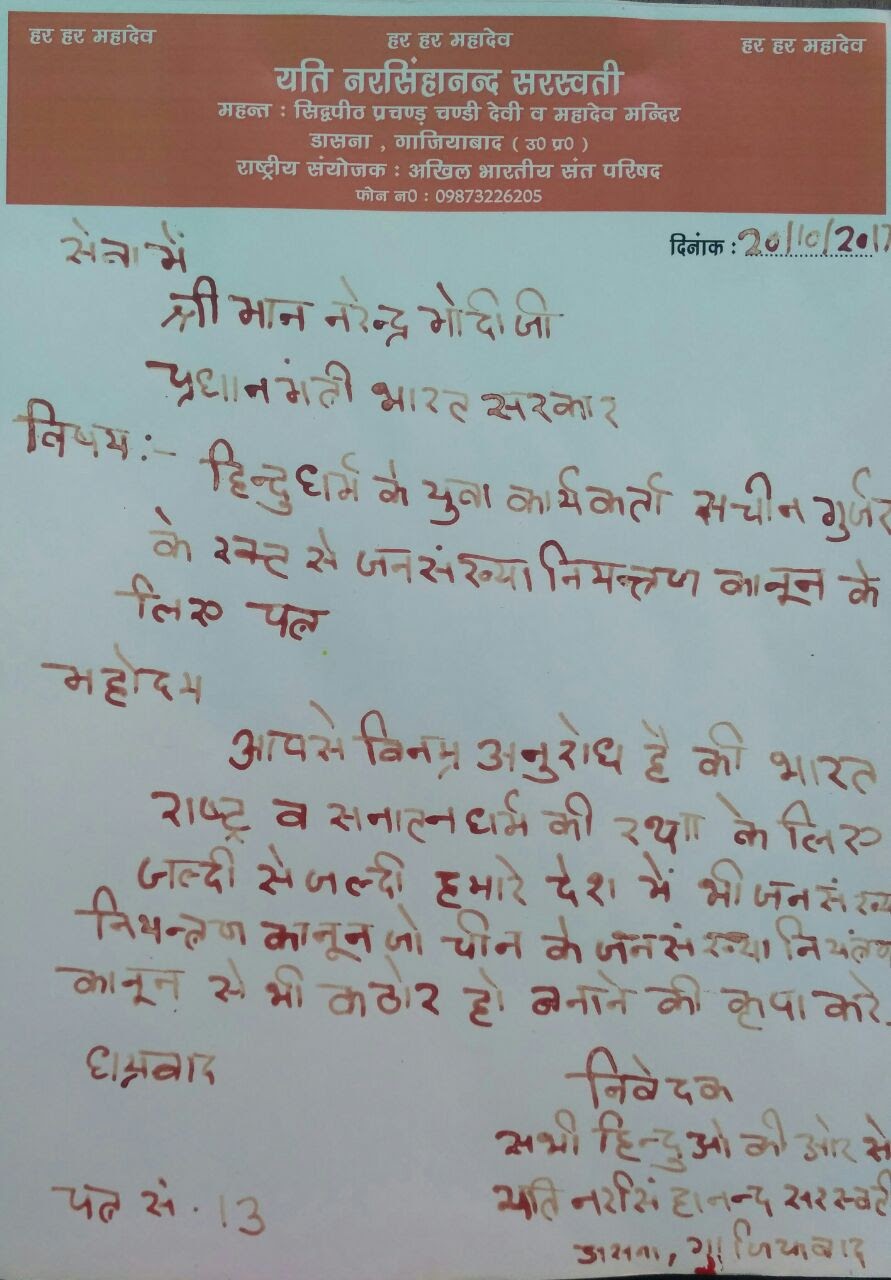 हर हर महादेव हर हर महादेव हर हर महादेव
यति नरसिंहानन्द सरस्वती
महन्त : सिद्वपीठ प्रचण्ड़ चण्डी देवी व महादेव मन्दिर
डासना , गाजियाबाद ( उ0 प्र0 )
राष्ट्रीय संयोजक : अखिल भारतीय संत परिषद
फोन न0 : 09873226205
दिनांक : 20/10/2017
सेवा में
श्री मान नरेन्द्र मोदी जी
प्रधानमंत्री भारत सरकार
विषय :- हिन्दु धर्म के युवा कार्यकर्ता सचीन गुर्जर
के रक्त से जनसंख्या नियन्त्रण कानून के
लिए पत्र
महोदय
आपसे विनम्र अनुरोध है की भारत
राष्ट्र व सनातन धर्म की रक्षा के लिए
जल्दी से जल्दी हमारे देश में भी जनसंख्या
नियन्त्रण कानून जो चीन के जनसंख्या नियंत्रण
कानून से भी कठोर हो बनाने की कृपा करे.
धन्यवाद
निवेदक
सभी हिन्दुओ की ओर से
पत्र सं. 13 यति नरसिंहानन्द सरस्वती
डासना, गाजियाबाद